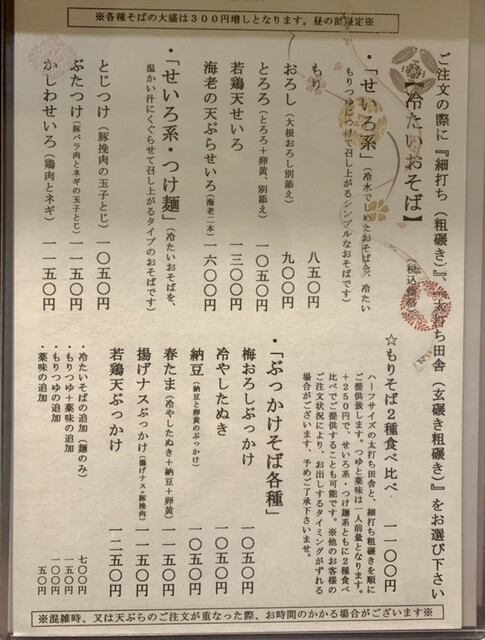 ※各種そばの大盛は３００円増しとなります。昼の部限定※
ご注文の際に『細打ち（粗碾き）』、『太打ち田舎（玄碾き粗碾き）』をお選び下さい
【冷たいおそば】
（税込価格）
・「せいろ系」（冷水でしめたおそばを、冷たい
もりつゆにつけて召し上がるシンプルなおそばです）
もり 八五〇円
おろし（大根おろし別添え） 九〇〇円
とろろ（とろろ＋卵黄、別添え） 一〇五〇円
若鶏天せいろ 一三〇〇円
海老の天ぷらせいろ（海老二本） 一六〇〇円
・「せいろ系・つけ麺」（冷たいおそばを、
温かい汁にくぐらせて召し上がるタイプのおそばです）
とじつけ（豚挽肉の玉子とじ） 一〇五〇円
ぶたつけ（豚バラ肉とネギの玉子とじ） 一一五〇円
かしわせいろ（鶏肉とネギ） 一一五〇円
☆もりそば２種食べ比べ 一一〇〇円
ハーフサイズの太打ち田舎と、細打ち粗碾きを順に
ご提供致します。つゆと薬味は一人前量となります。
＋２５０円で、せいろ系・つけ麺系ともに２種食べ
比べでご提供することも可能です。※他のお客様の
ご注文状況により、お出しするタイミングがずれる
場合がございます、予めご了承下さいませ。
・「ぶっかけそば各種」
梅おろしぶっかけ 一〇五〇円
冷やしたぬき 一〇五〇円
納豆（納豆と卵黄のぶっかけ） 一〇五〇円
春たま（冷やしたぬき＋納豆＋卵黄） 一一五〇円
揚げナスぶっかけ（揚げナス・豚挽肉） 一一五〇円
若鶏天ぶっかけ 一二五〇円
・冷たいそばの追加（麺のみ） 七〇〇円
・もりつゆ＋薬味の追加 一五〇円
・もりつゆの追加 一〇〇円
・薬味の追加 五〇円
※混雑時、又は天ぷらのご注文が重なった際、お時間のかかる場合がございます※